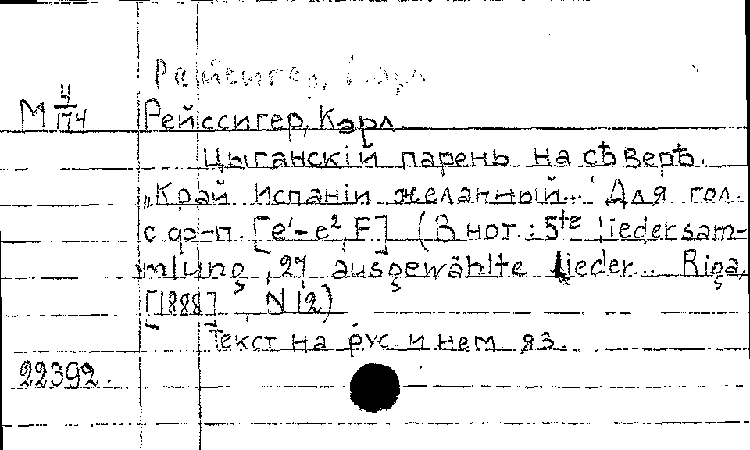 Рейсигер, Карл
М 4/174 Рейссигер, Карл
Цыганскій парень на сѣверѣ.
„Край Испаніи желанный..." Для гол.
с ф-п. [e'-e², F] (В нот.: 5te liedersam-
mlung, 24 ausgewählte Lieder.. Riga,
[1888], N 12)
Текст на рус и нем яз.
22392.